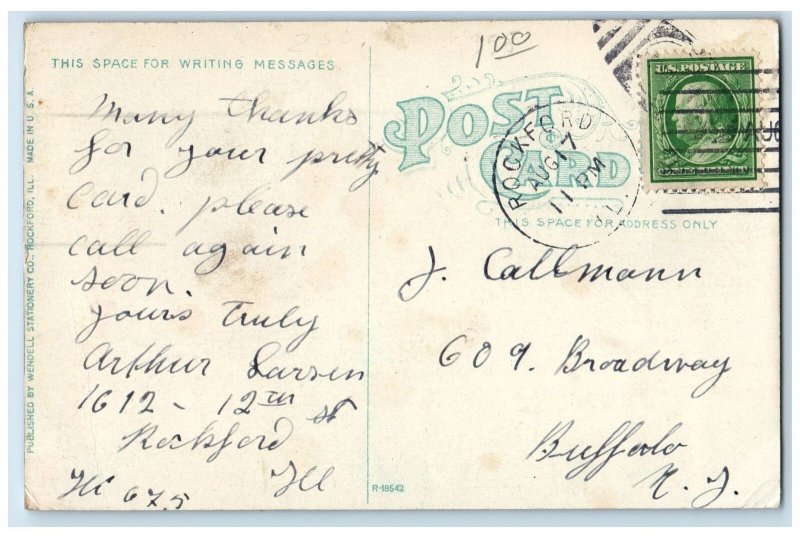 THIS SPACE FOR WRITING MESSAGES.
Many thanks
for your pretty
card. please
call again
soon.
yours truly
Arthur Larsen
1612 - 12th st
Rockford
Ill
675
PUBLISHED BY WENDELL STATIONERY CO., ROCKFORD, ILL. MADE IN U.S.A.
R-18542
100
POST CARD
THIS SPACE FOR ADDRESS ONLY
ROCKFORD
AUG 17
11 PM
U.S. POSTAGE
J. Callmann
609. Broadway
Buffalo
N. Y.